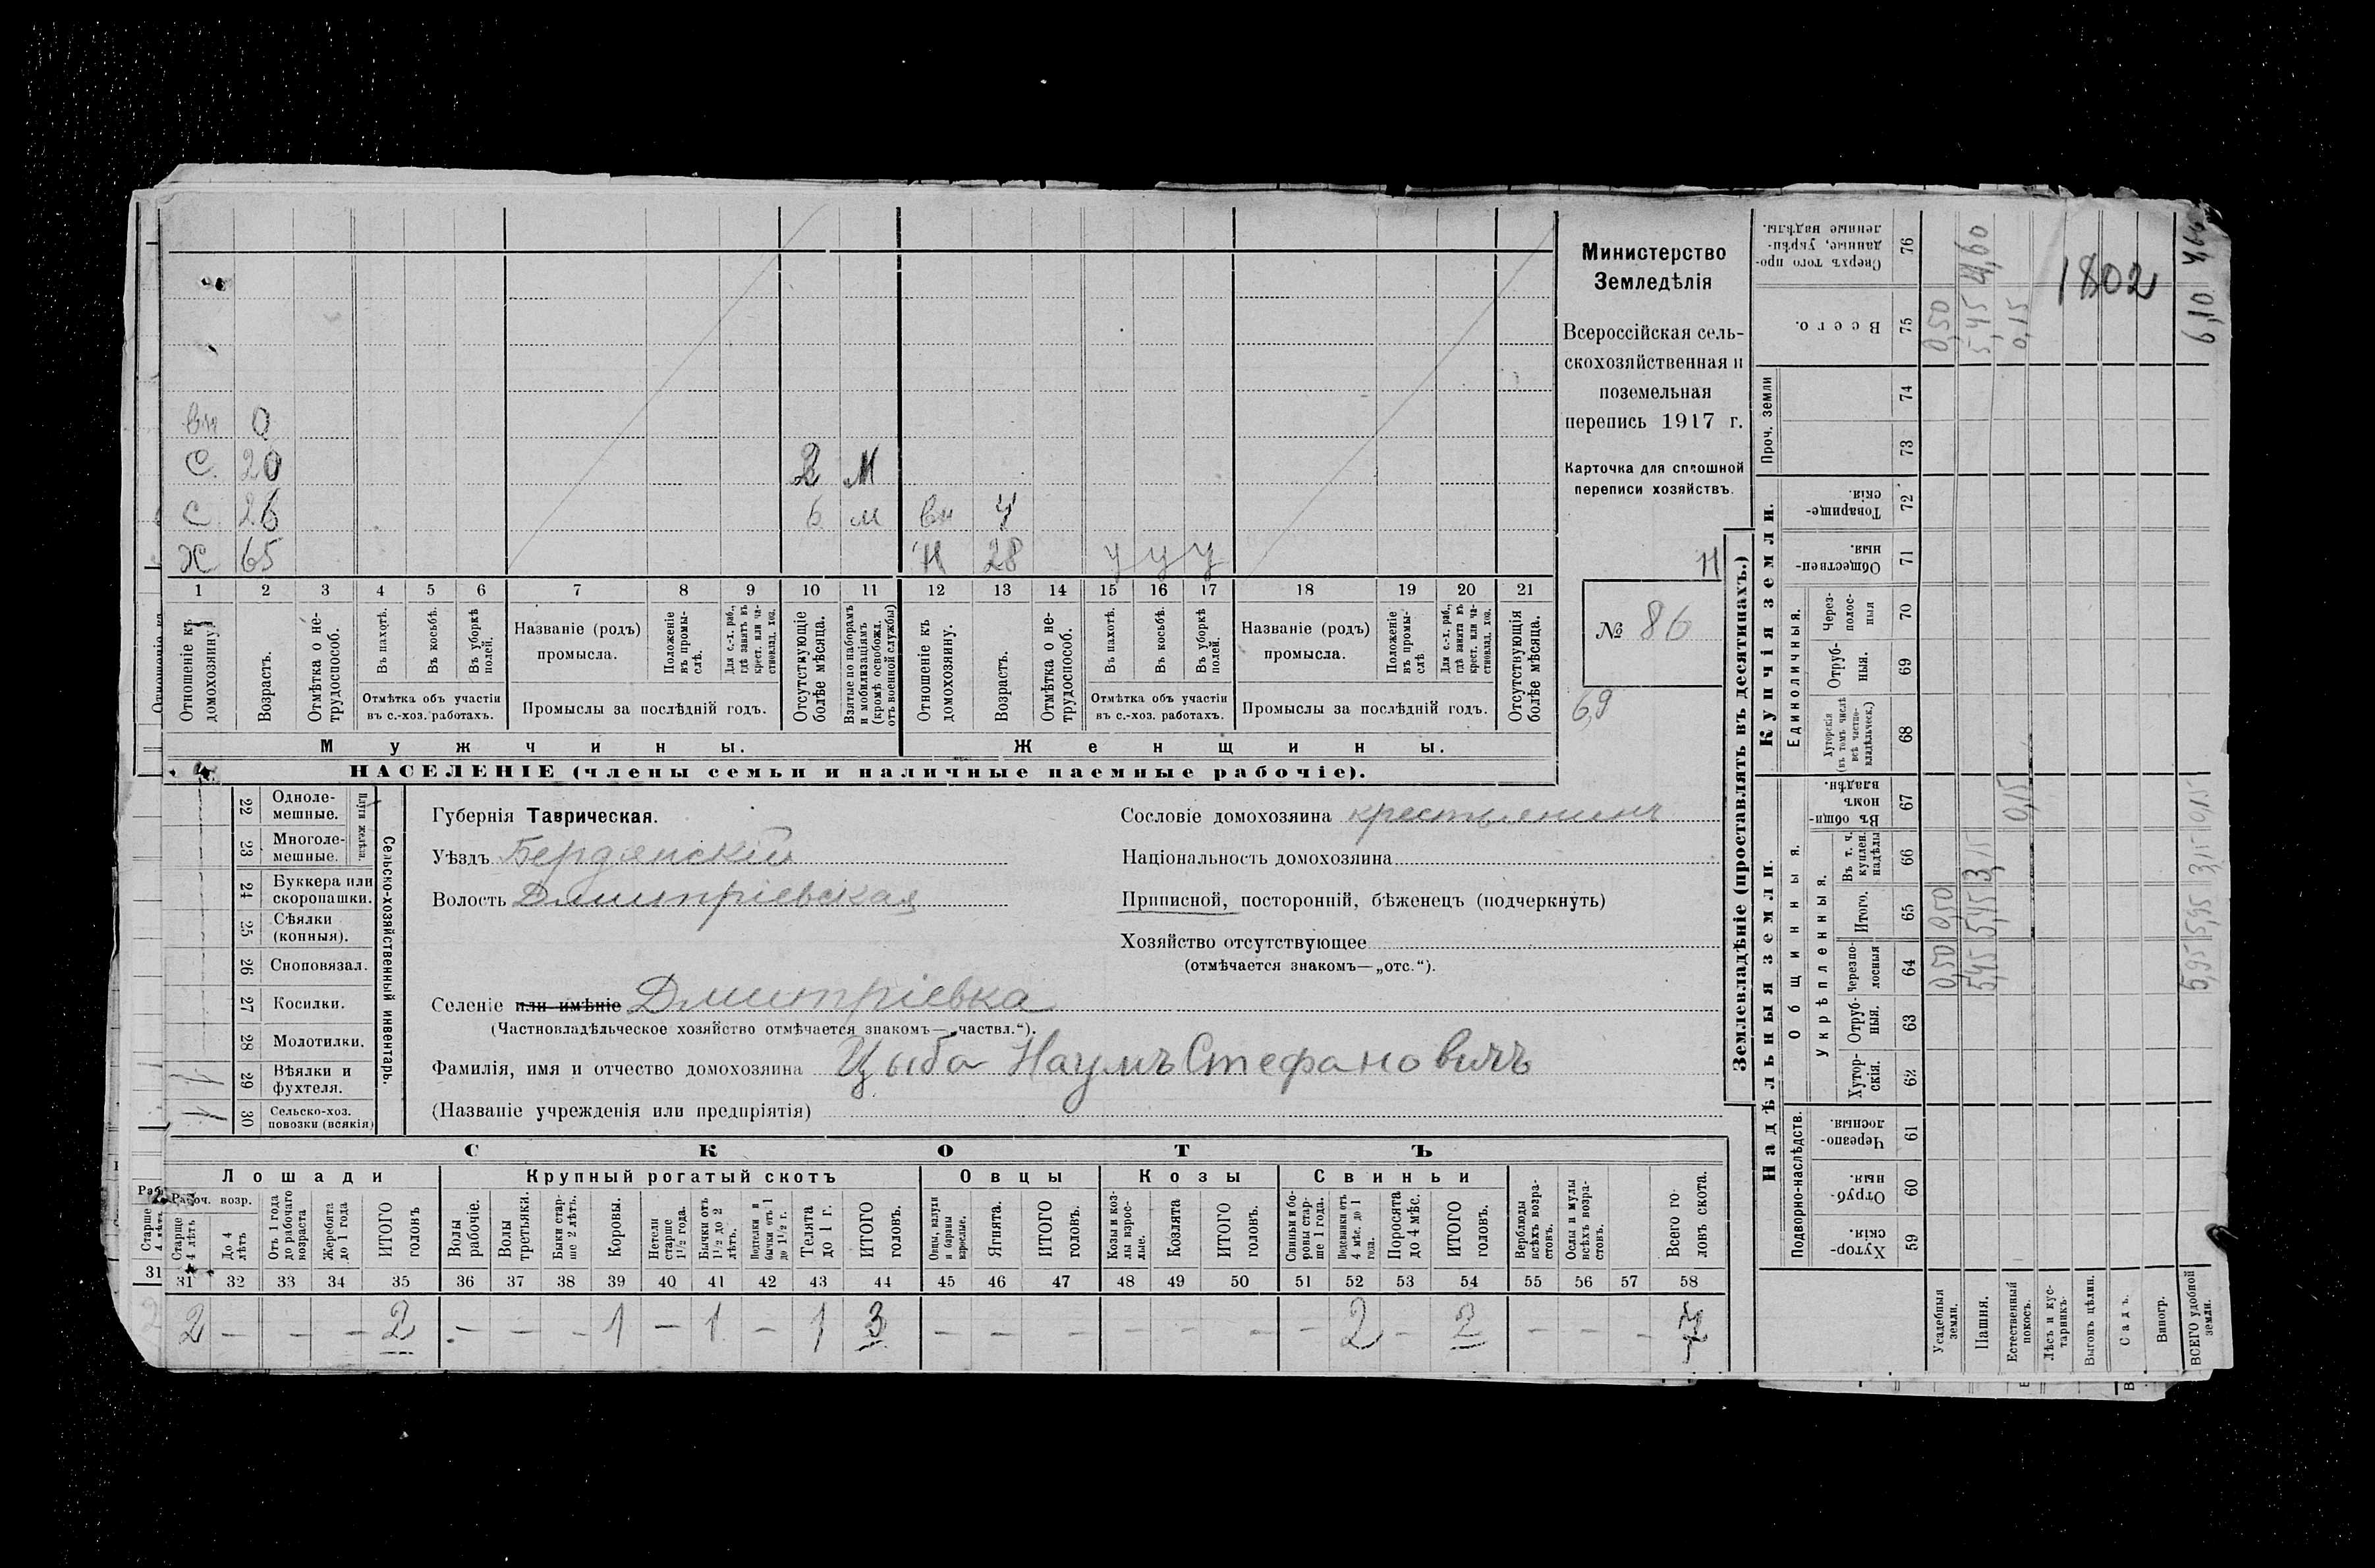 Министерство
Земледѣлія
Всероссійская сель-
скохозяйственная и
поземельная
перепись 1917 г.
Карточка для сплошной
переписи хозяйствъ.
№ 86
6,9
вн 0
С. 20 2 м
С 26 6 м вн 4
Х 65 28 у у у
1 2 3 4 5 6 7 8 9 10 11 12 13 14 15 16 17 18 19 20 21
Отношеніе къ домохозяину.
Возрастъ.
Отмѣтка о не-трудоспособ.
Въ пахотѣ.
Въ косьбѣ.
Въ уборкѣ полей.
Отмѣтка объ участіи въ с.-хоз. работахъ.
Названіе (родъ) промысла.
Положеніе въ промы-слѣ.
Для с.-х. раб., гдѣ занятъ въ крест. или ча-стновлад. хоз.
Промыслы за послѣдній годъ.
Отсутствующіе болѣе мѣсяца.
Взятые по наборамъ и мобилизаціямъ (кромѣ освобожд. отъ военной службы)
Отношеніе къ домохозяину.
Возрастъ.
Отмѣтка о не-трудоспособ.
Въ пахотѣ.
Въ косьбѣ.
Въ уборкѣ полей.
Отмѣтка объ участіи въ с.-хоз. работахъ.
Названіе (родъ) промысла.
Положеніе въ промы-слѣ
Для с.-х. раб., гдѣ занята въ крест. или ча-стновлад. хоз.
Промыслы за послѣдній годъ.
Отсутствующія болѣе мѣсяца.
Мужчины. Женщины.
НАСЕЛЕНІЕ (члены семьи и наличные наемные рабочіе).
Сельско-хозяйственный инвентарь.
Плуги желѣзн.
22 Одноле-мешные.
23 Многоле-мешные.
24 Буккера или скоропашки.
25 Сѣялки (конныя).
26 Сноповязал.
27 Косилки.
28 Молотилки.
1 29 Вѣялки и фухтеля.
1 30 Сельско-хоз. повозки (всякія)
Губернія Таврическая.
Уѣздъ Бердянскій
Волость Дмитріевская
Селеніе или имѣніе Дмитріевка
(Частновладѣльческое хозяйство отмѣчается знакомъ—„частвл.“).
Фамилія, имя и отчество домохозяина Цыба Наумъ Стефановичъ
(Названіе учрежденія или предпріятія)
Сословіе домохозяина крестьянинъ
Національность домохозяина
Приписной, посторонній, бѣженецъ (подчеркнуть)
Хозяйство отсутствующее
(отмѣчается знакомъ—„отс.“).
СКОТЪ
Лошади Крупный рогатый скотъ Овцы Козы Свиньи
Рабоч. возр.
Старше 4 лѣтъ
До 4 лѣтъ
Отъ 1 года до рабочаго возраста
Жеребята до 1 года
ИТОГО головъ
Волы рабочіе.
Волы третьяки.
Быки стар-ше 2 лѣтъ.
Коровы.
Нетели старше 1½ года.
Бычки отъ 1½ до 2 лѣтъ.
Подтелки и бычки отъ 1 до 1½ г.
Телята до 1 г.
ИТОГО головъ.
Овцы, валухи и бараны взрослые.
Ягнята.
ИТОГО головъ.
Козы и коз-лы взрос-лые.
Козлята
ИТОГО головъ.
Свиньи и бо-ровы стар-ше 1 года.
Подсвинки отъ 4 мѣс. до 1 года.
Поросята до 4 мѣс.
ИТОГО головъ.
Верблюды всѣхъ возра-стовъ.
Ослы и мулы всѣхъ возра-стовъ.
Всего го-ловъ скота.
31 32 33 34 35 36 37 38 39 40 41 42 43 44 45 46 47 48 49 50 51 52 53 54 55 56 57 58
2 — — — 2 — — — 1 — 1 — 1 3 — — — — — — — 2 — 2 — — — 7
Землевладѣніе (проставлять въ десятинахъ.)
Надѣльныя земли. Купчія земли. Проч. земли
Подворно-наслѣдств.
Общинныя.
Укрѣпленныя.
Единоличныя.
Хутор-скія. 59
Отруб-ныя. 60
Черезпо-лосныя. 61
Хутор-скія. 62
Отруб-ныя. 63
Черезпо-лосныя 64
Итого. 65
Въ т. ч. куплен. надѣлы 66
Въ общи-номъ владѣн. 67
Хуторскія (въ томъ числѣ всѣ частно-владѣльческ.) 68
Отруб-ныя. 69
Через-полос-ныя 70
Обществен-ныя. 71
Товарище-скія. 72
73
74
Всего. 75
Сверхъ того про-данные, укрѣп-ленные надѣлы. 76
Усадебныя земли. 0,50 0,50 0,50
Пашня. 5,45 5,45 3,15 5,45 4,60
Естественный покосъ. 0,15 0,15
Лѣсъ и кус-тарникъ.
Выгонъ цѣлин.
Садъ.
Виногр.
ВСЕГО удобной земли. 5,95 5,95 3,15 0,15 6,10
1802